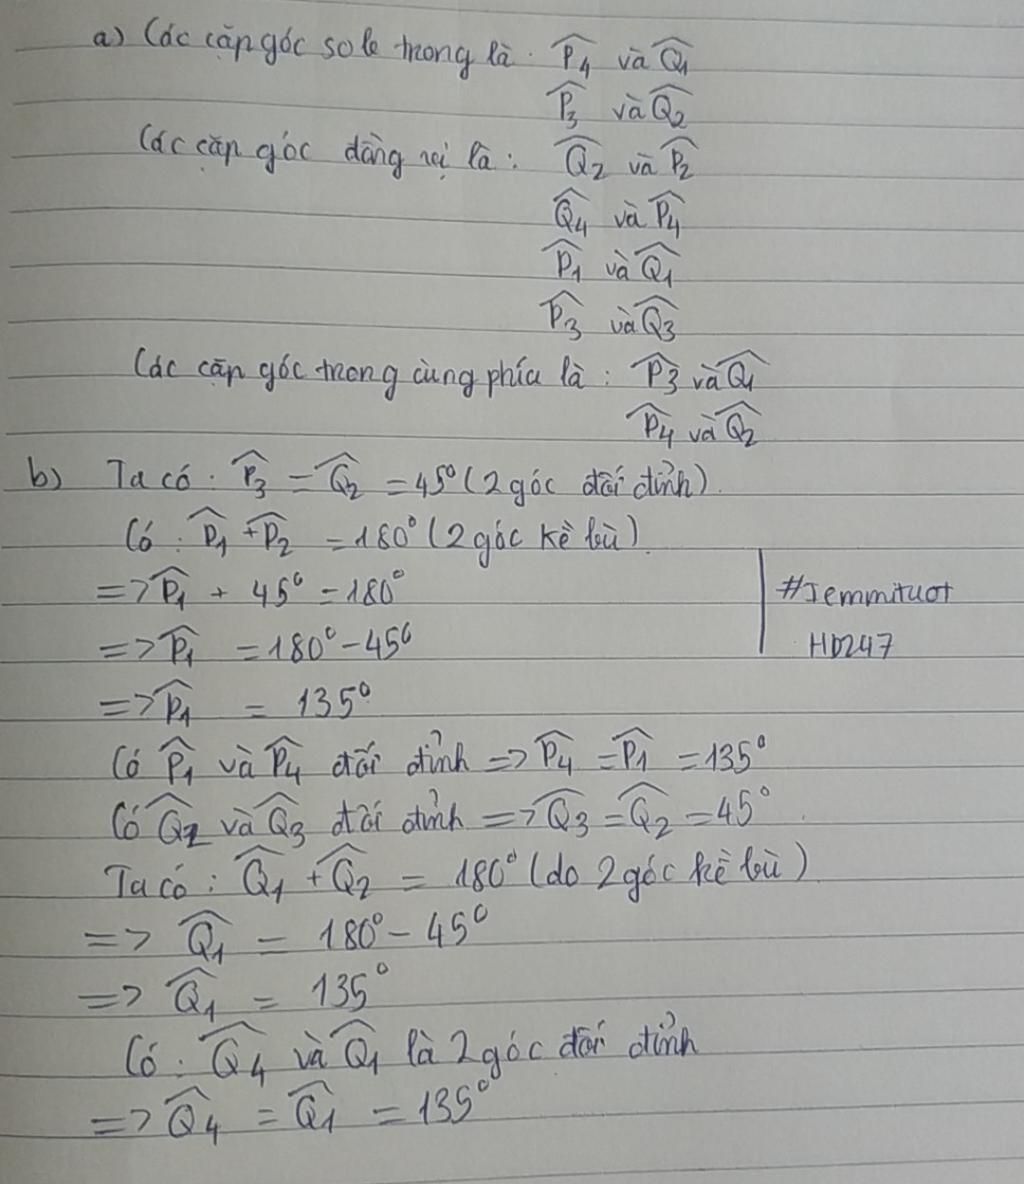 a) Các cặp góc so le trong là: P̂4 và Q̂1
P̂3 và Q̂2
Các cặp góc đồng vị là: Q̂2 và P̂2
Q̂4 và P̂4
P̂1 và Q̂1
P̂3 và Q̂3
Các cặp góc trong cùng phía là: P̂3 và Q̂1
P̂4 và Q̂2
b) Ta có: P̂3 = Q̂2 = 45° (2 góc đối đỉnh).
Có: P̂1 + P̂2 = 180° (2 góc kề bù)
=> P̂1 + 45° = 180°
=> P̂1 = 180° - 45°
#Jemmituot
HD247
=> P̂1 = 135°
Có P̂1 và P̂4 đối đỉnh => P̂4 = P̂1 = 135°
Có Q̂2 và Q̂3 đối đỉnh => Q̂3 = Q̂2 = 45°.
Ta có: Q̂1 + Q̂2 = 180° (do 2 góc kề bù)
=> Q̂1 = 180° - 45°
=> Q̂1 = 135°
Có: Q̂4 và Q̂1 là 2 góc đối đỉnh
=> Q̂4 = Q̂1 = 135°